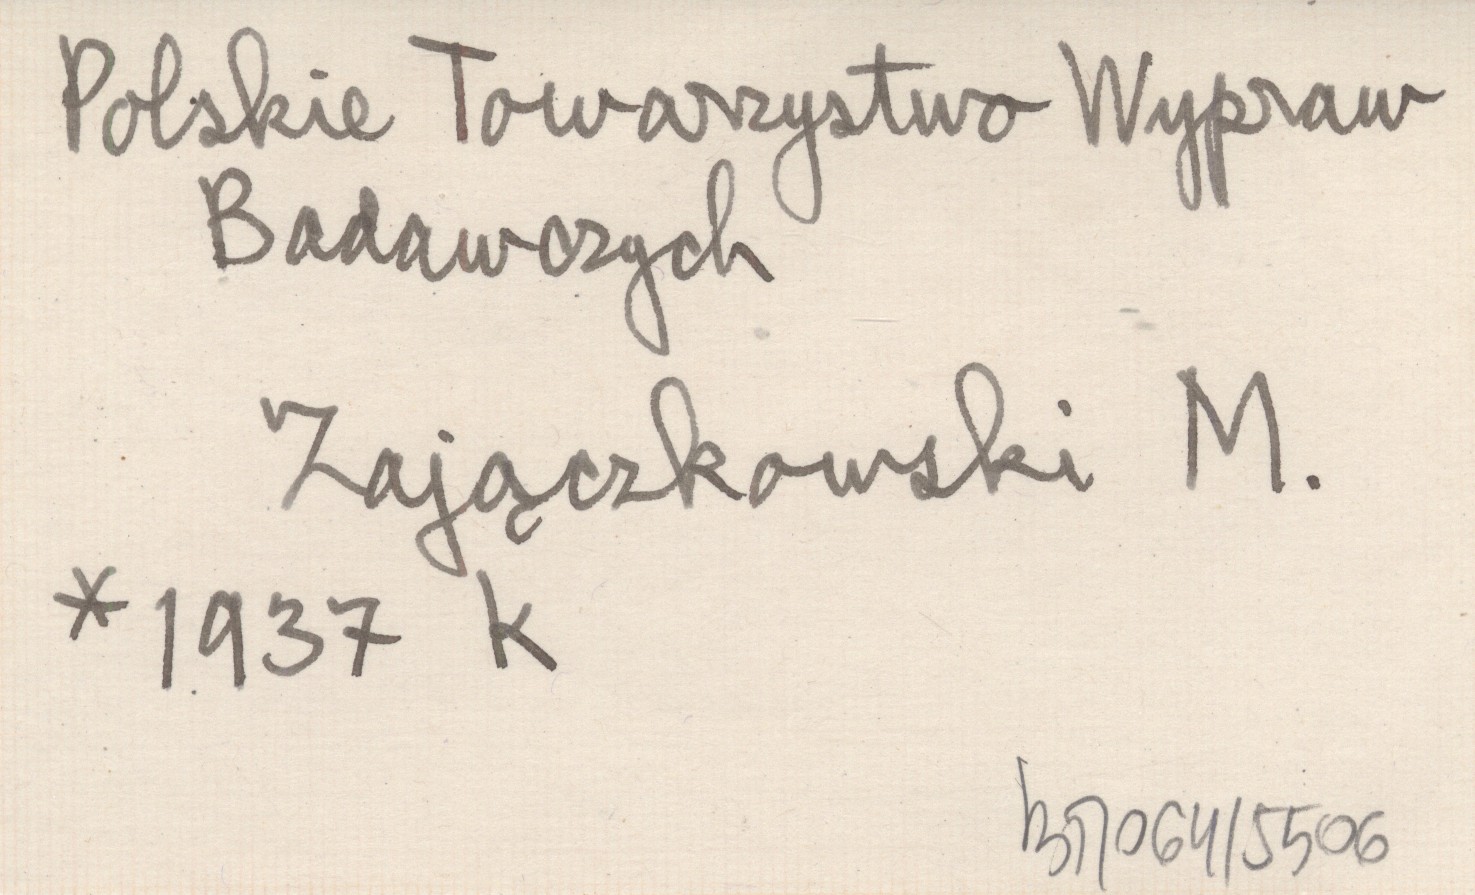 Polskie Towarzystwo Wypraw
Badawczych
Zajączkowski M.
* 1937 k